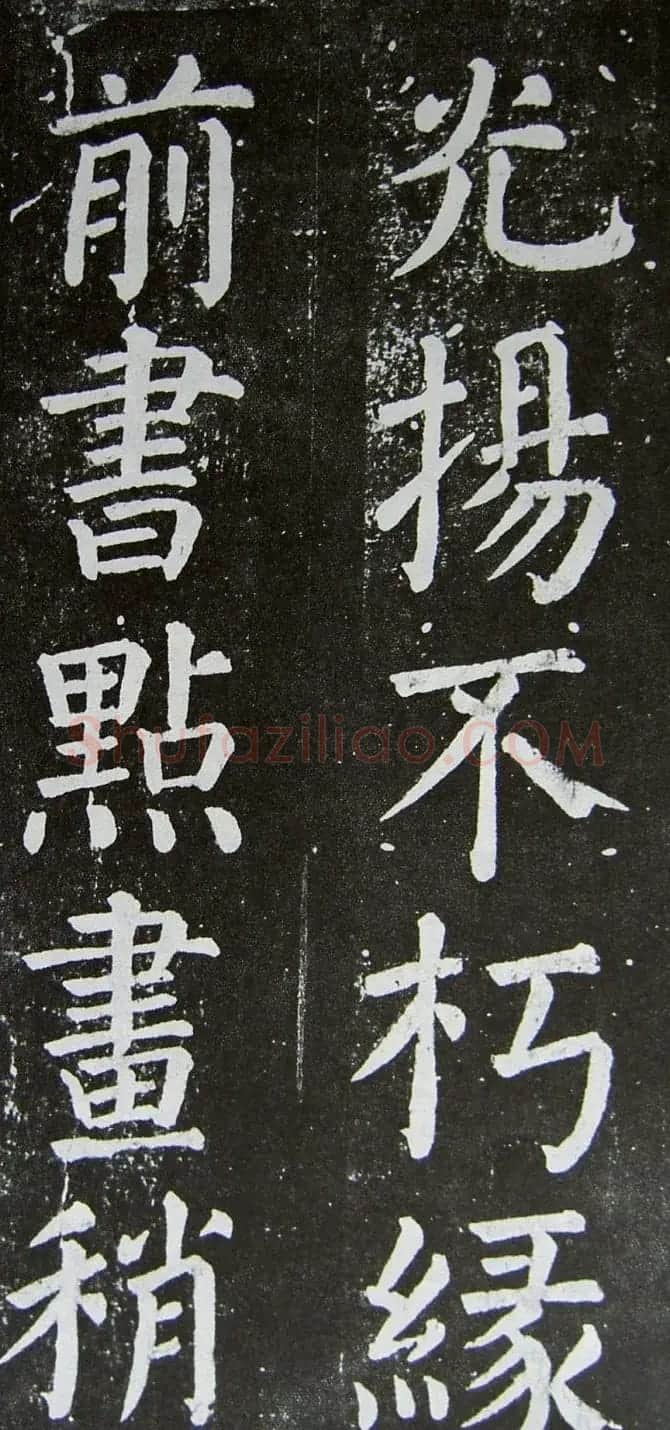 光揚不朽緣
前書點畫稍
Shufaziliao.COM